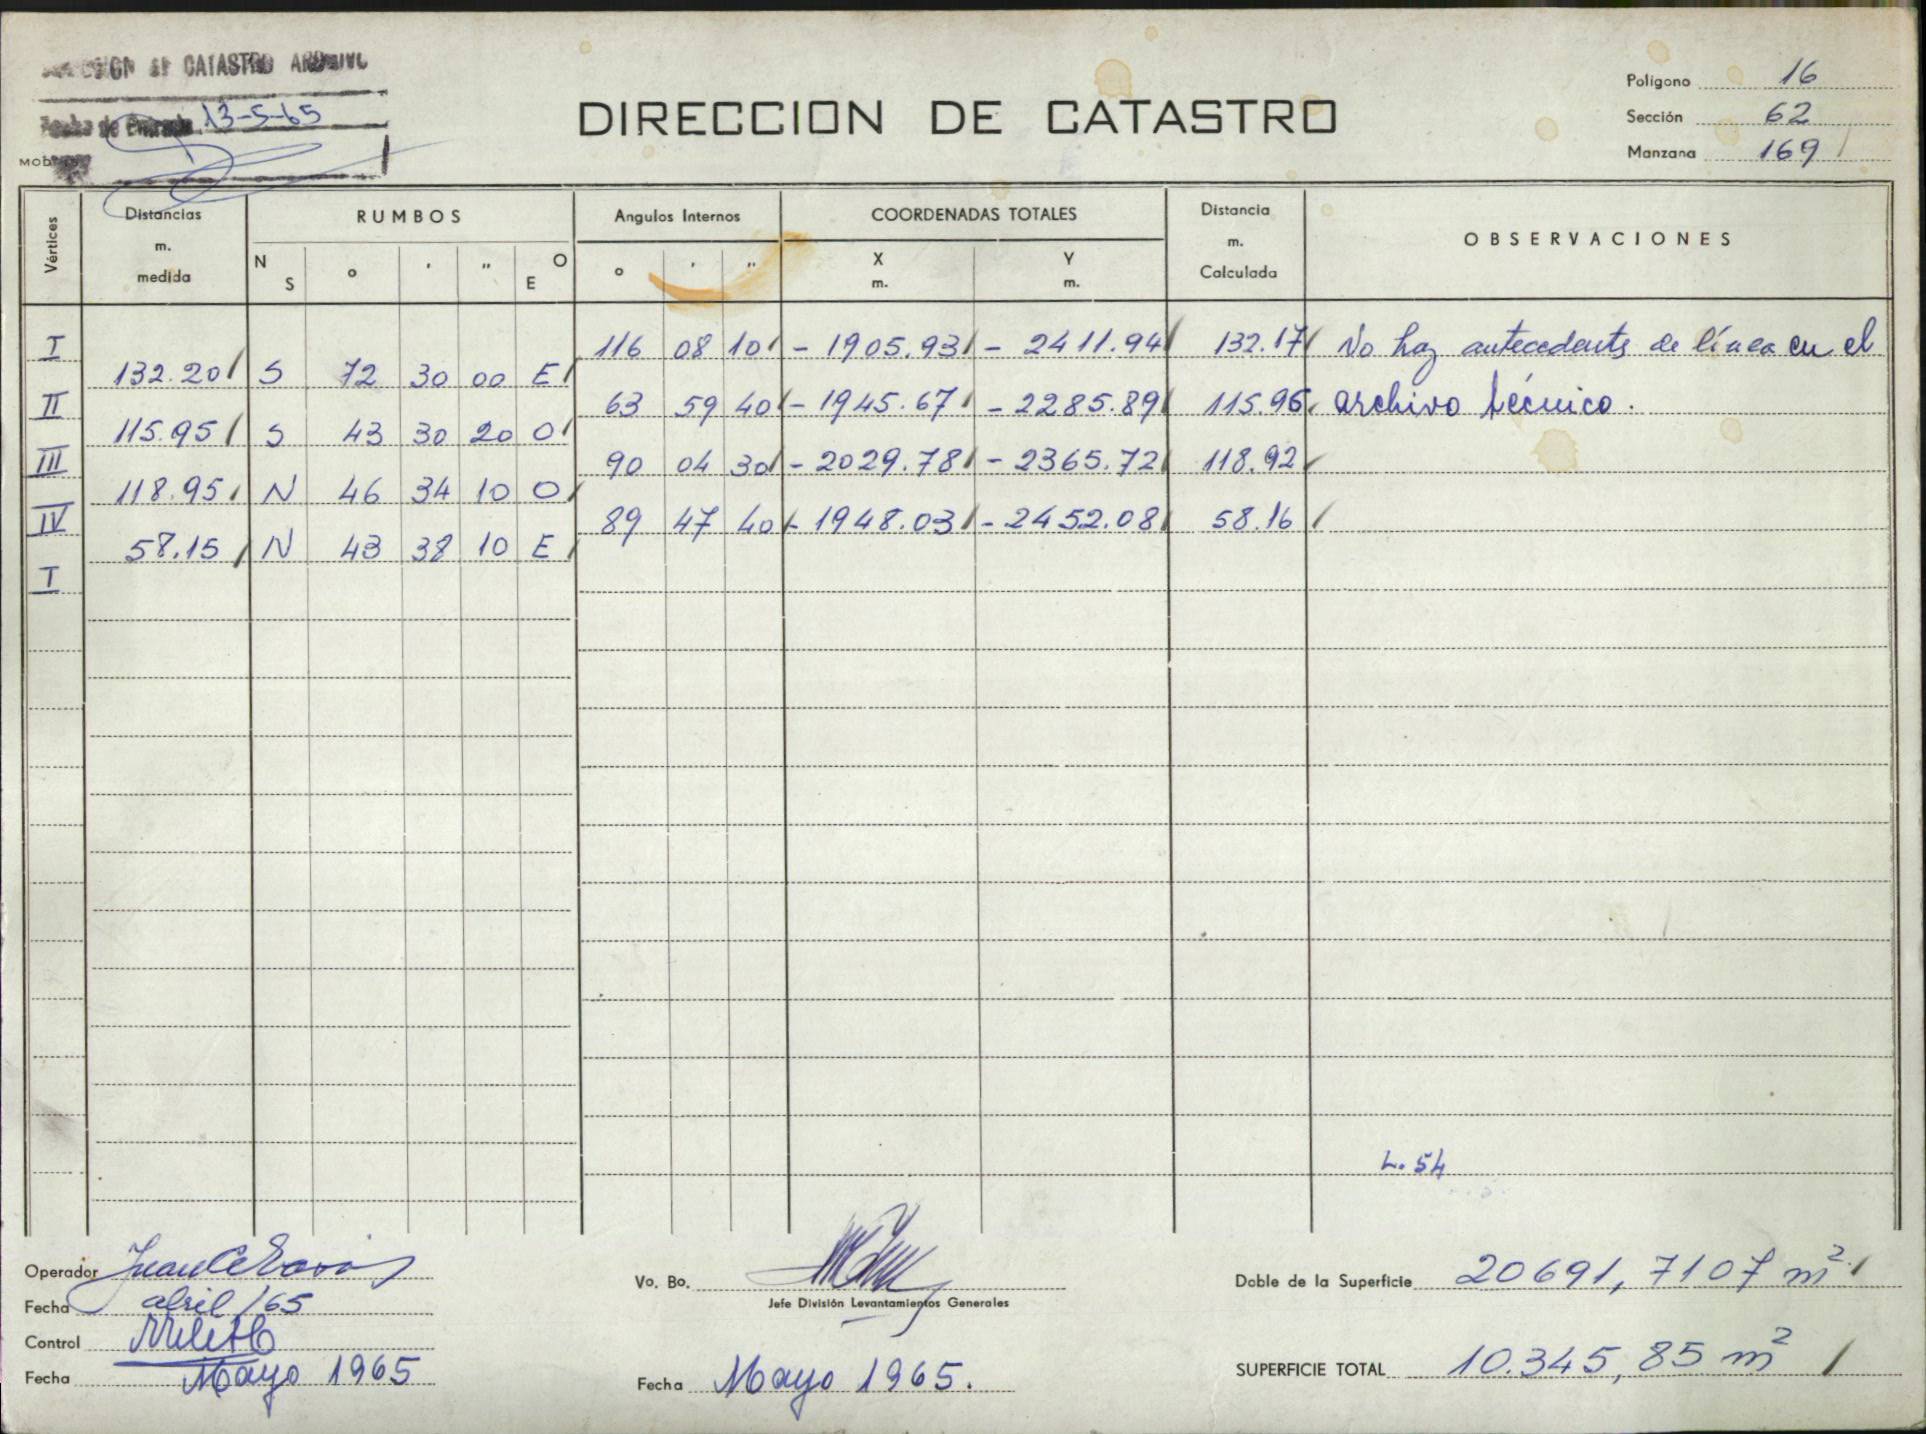 DIVISION DE CATASTRO ARCHIVO
Fecha de Entrada 13-5-65
DIRECCION DE CATASTRO
Polígono 16
Sección 62
Manzana 169
Vértices Distancias m. medida RUMBOS Angulos Internos COORDENADAS TOTALES Distancia m. Calculada OBSERVACIONES
N S ° ' " O E ° ' " X m. Y m.
I 116 08 10 - 1905.93 - 2411.94 132.17 No hay antecedents de línea en el
132.20 S 72 30 00 E
II 63 59 40 - 1945.67 - 2285.89 115.96 archivo técnico.
115.95 S 43 30 20 O
III 90 04 30 - 2029.78 - 2365.72 118.92
118.95 N 46 34 10 O
IV 89 47 40 - 1948.03 - 2452.08 58.16
58.15 N 43 38 10 E
I
L. 54
Operador
Fecha abril/65
Control
Fecha Mayo 1965
Vo. Bo.
Jefe División Levantamientos Generales
Fecha Mayo 1965.
Doble de la Superficie 20691,7107 m²
SUPERFICIE TOTAL 10.345,85 m²